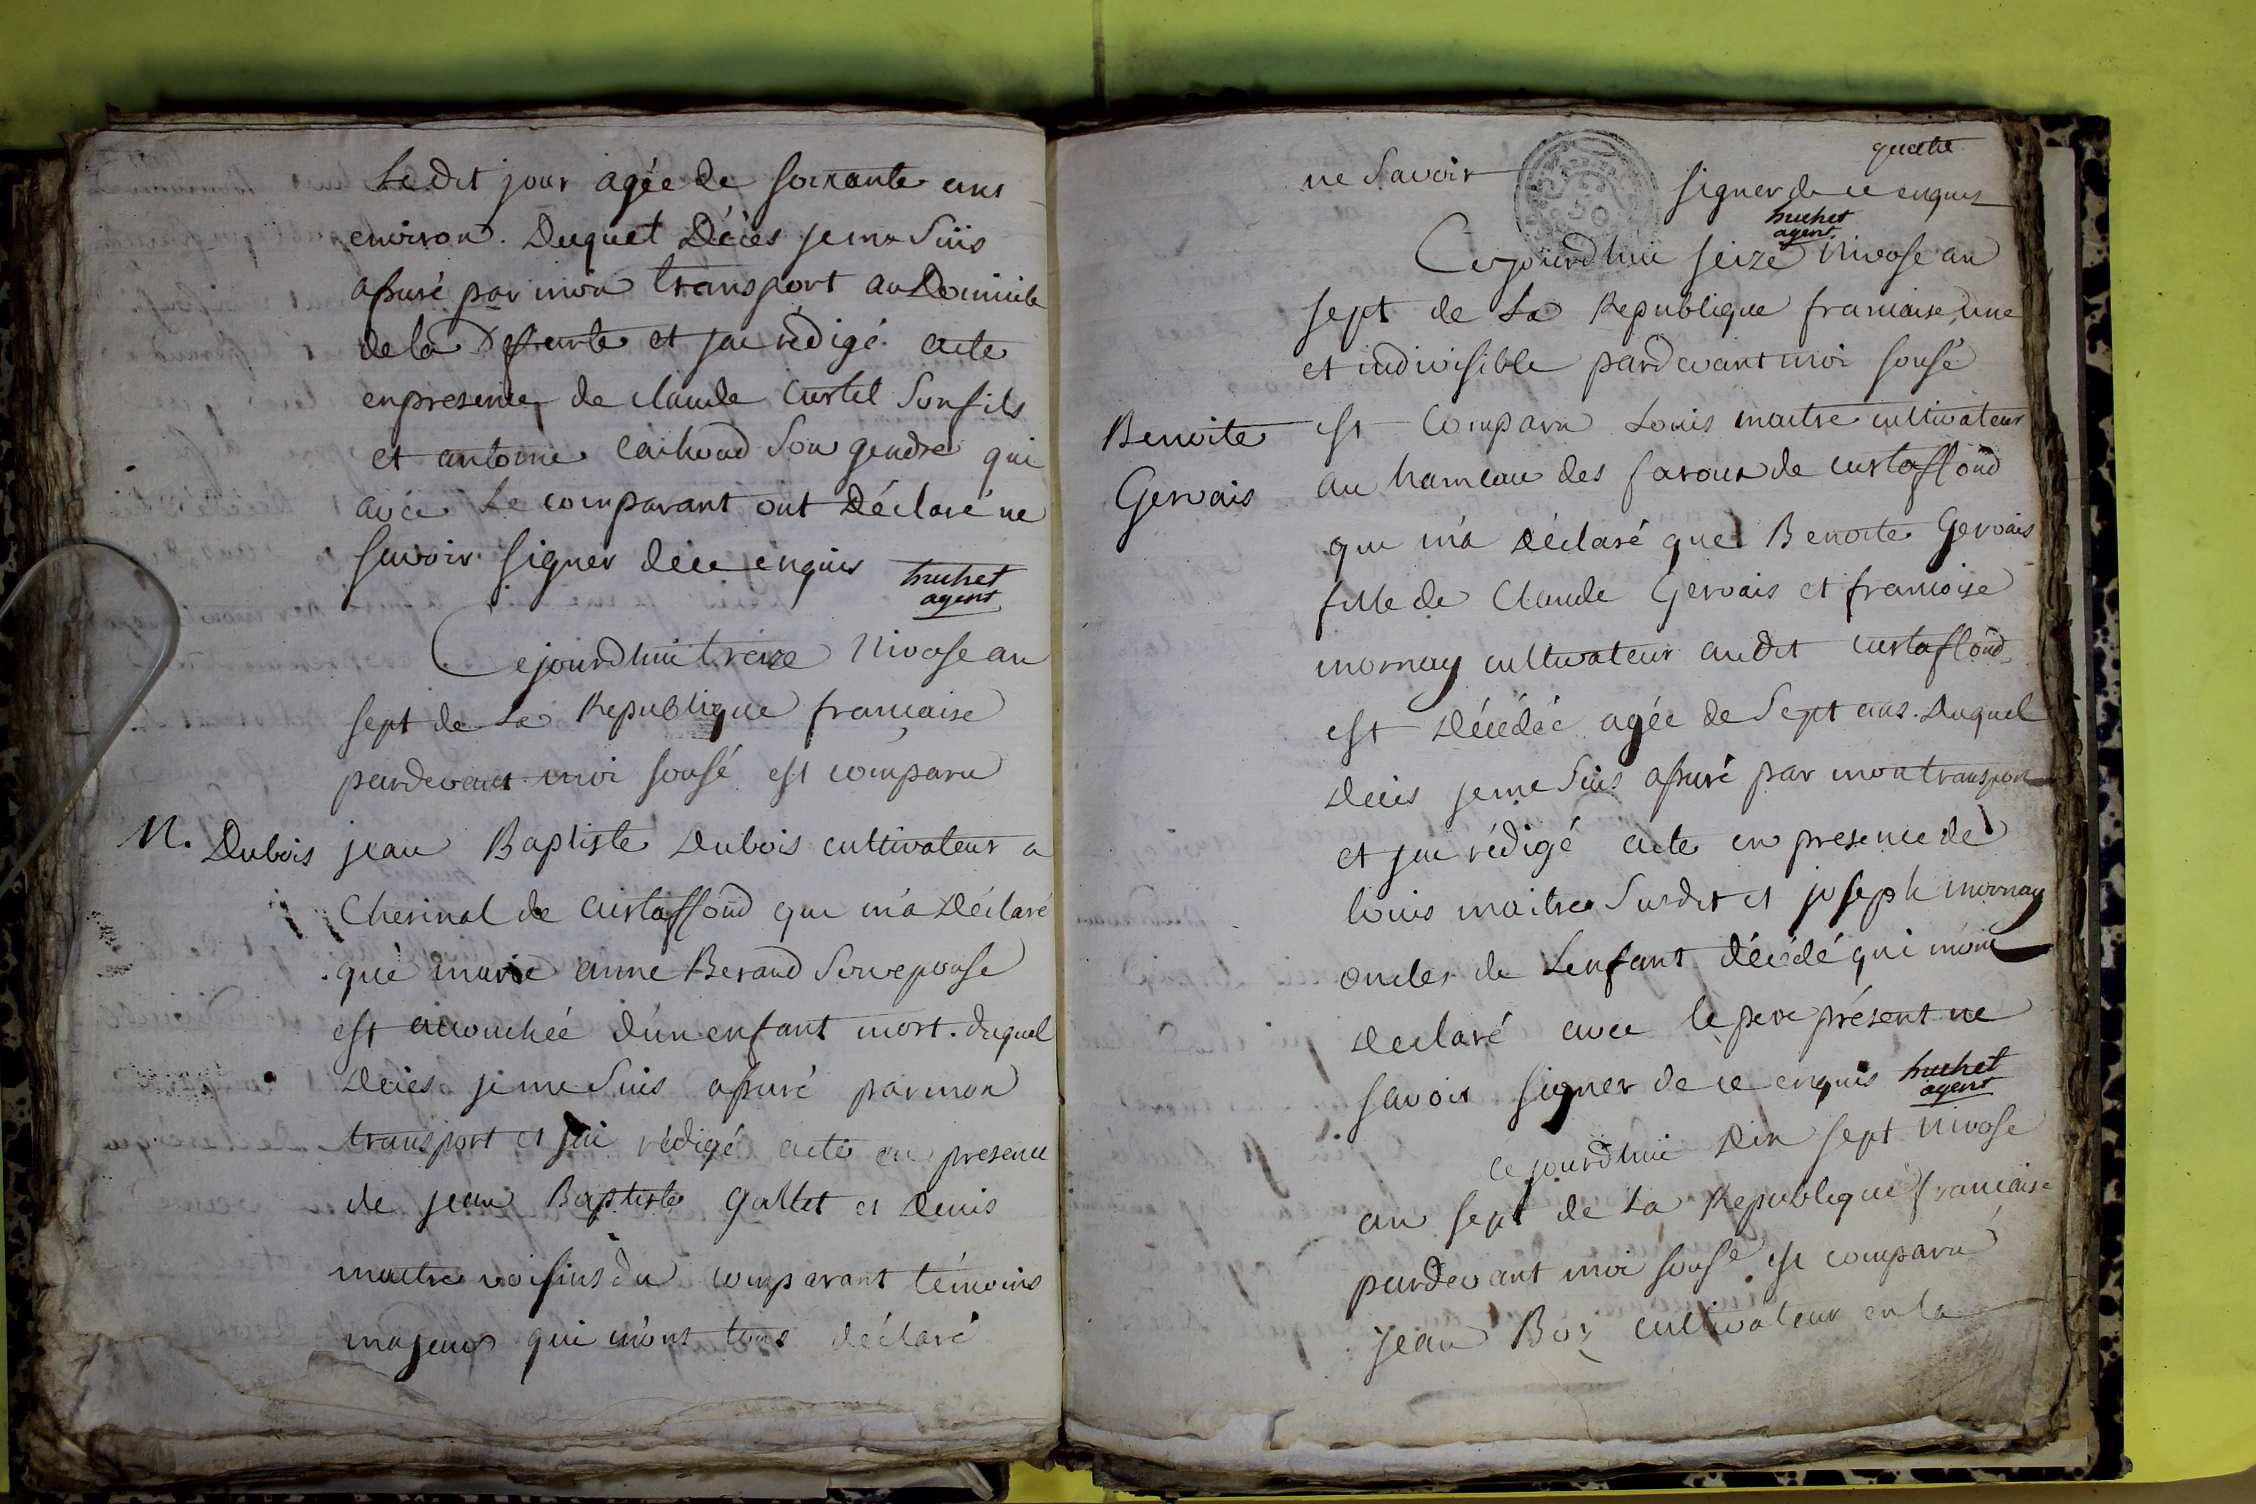 Le dit jour agée de soixante ans
environ. Duquel Décès je me suis
assuré par mon transport au Domicile
de la Defunte et jai rédigé acte
en presence de claude Curtil son fils
et antoine Cailloud son gendre qui
avec le comparant ont Déclaré ne
savoir signer de ce enquis
huchet
agent
Cejourdhui treize Nivose an
sept de La Republique française
pardevant moi sousé est comparu
N. Dubois
jean Baptiste Dubois cultivateur a
Cherinal de curtaffond qui m'a Déclaré
que marie anne Beraud son epouse
est accouchée d'un enfant mort. duquel
Décès je me suis assuré par mon
transport et jai rédigé acte en presence
de jean Baptiste Gallet et Denis
maitre voisins du comparant témoins
majeurs qui m'ont tous déclaré
quatre
ne savoir signer de ce enquis
huchet
agent
50
Cejourdhui seize Nivose an
sept de La Republique francaise, une
et indivisible pardevant moi sousé
Benoite
Gervais
est comparu Louis maitre cultivateur
au hameau des favoux de curtaffond
qui m'a Déclaré que Benoite Gervais
fille de Claude Gervais et francoise
mornay cultivateur audit curtaffond
est Décédée agée de Sept ans. Duquel
Décès je me suis assuré par mon transport
et jai rédigé acte en presence de
louis maitre Susdit et joseph mornay
oncles de Lenfant décédé qui mont
Declaré avec le pere présent ne
savoir signer de ce enquis
huchet
agent
ce jourdhui Dix sept Nivose
an sept de La Republique francaise
pardevant moi sousé est comparu
jean Boz cultivateur en la